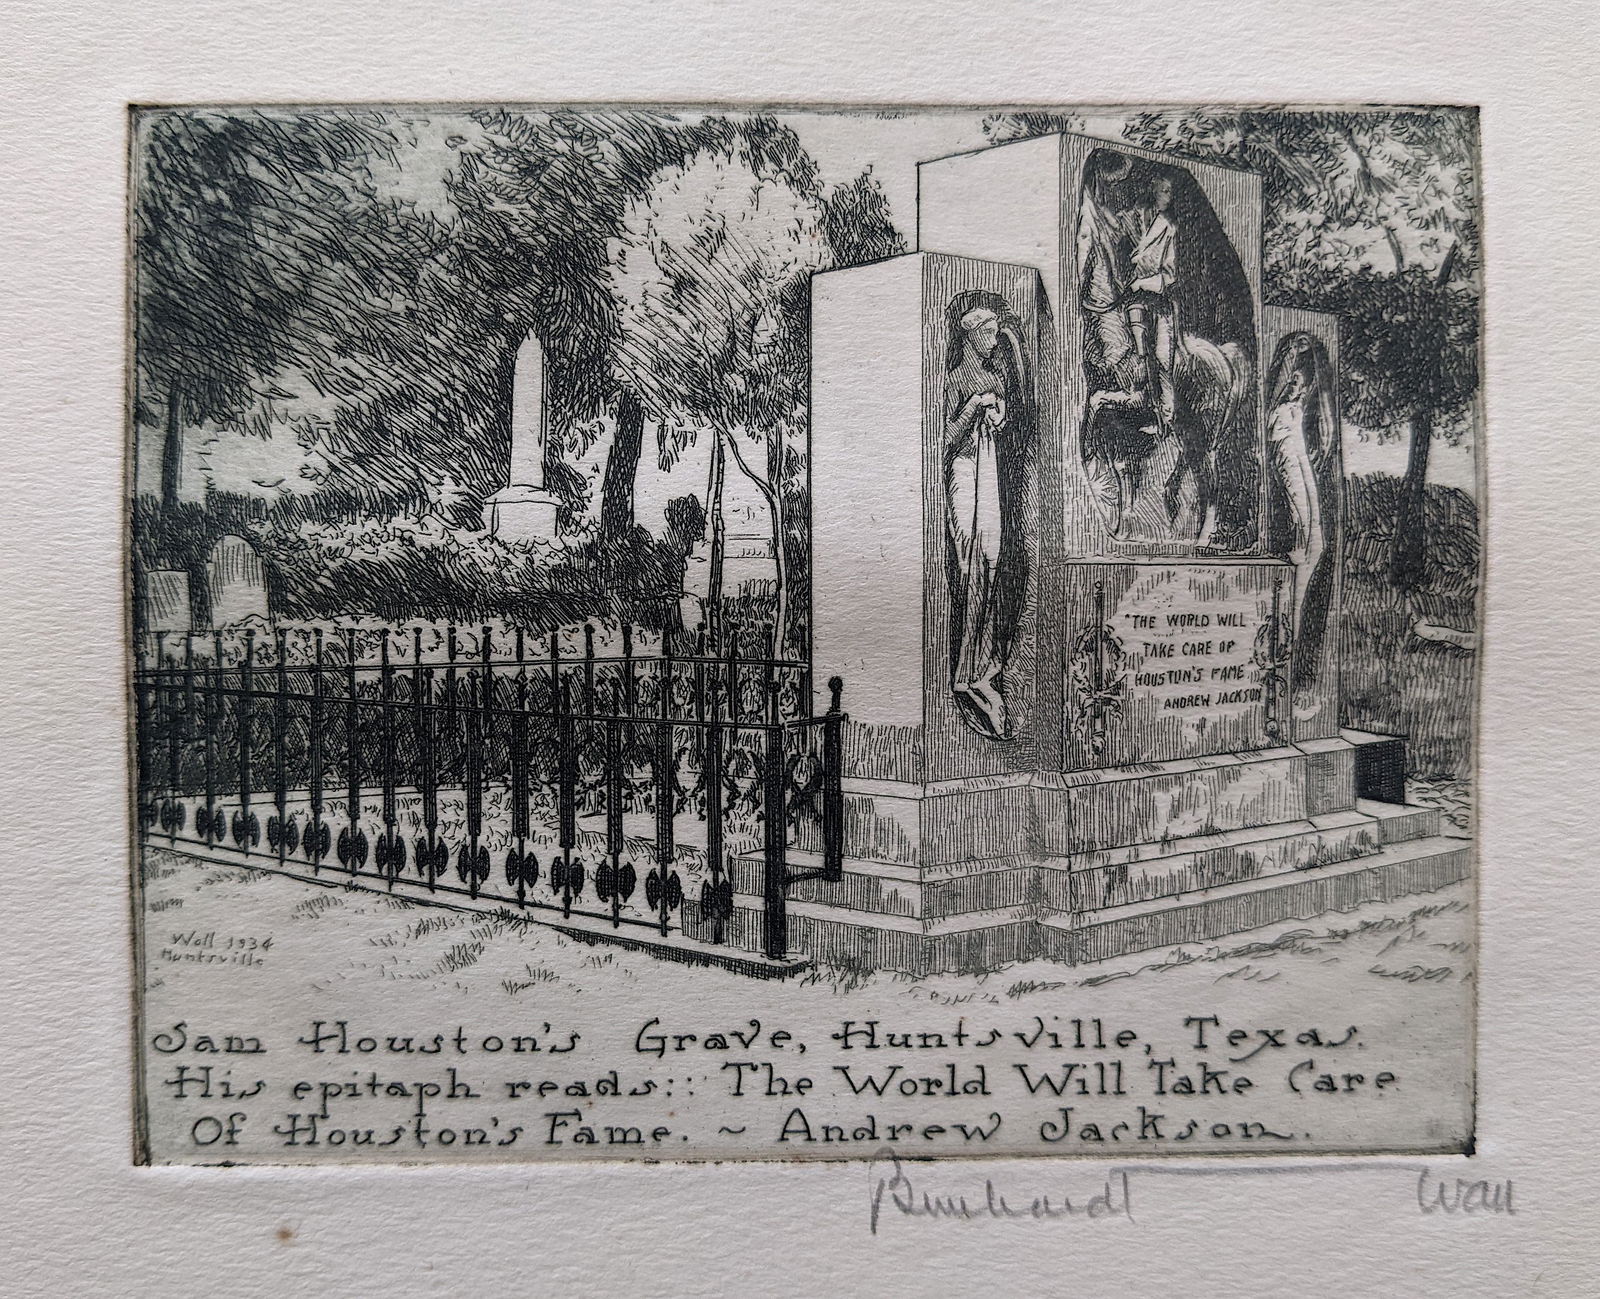 "THE WORLD WILL
TAKE CARE OF
HOUSTON'S FAME"
ANDREW JACKSON
Wall 1934
Huntsville
Sam Houston's Grave, Huntsville, Texas.
His epitaph reads:: The World Will Take Care
Of Houston's Fame. ~ Andrew Jackson.
Bernhardt Wall